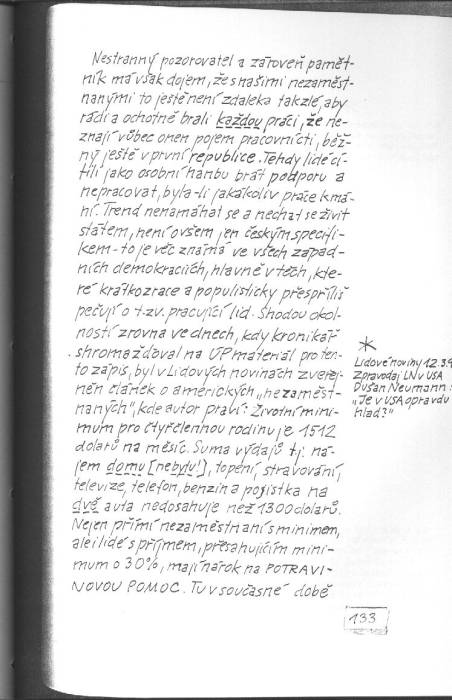 Nestranný pozorovatel a zároveň pamět-
ník má však dojem, že s našimi nezaměst-
nanými to ještě není zdaleka tak zlé, aby
rádi a ochotně brali každou práci, že ne-
znají vůbec onen pojem pracovní cti, běž-
ný ještě v první republice. Tehdy lidé cí-
tili jako osobní hanbu brát podporu a
nepracovat, byla-li jakákoliv práce k má-
ní. Trend nenamáhat se a nechat se živit
státem, není ovšem jen českým specifi-
kem - to je věc známá ve všech západ-
ních demokraciích, hlavně v těch, kte-
ré krátkozrace a populisticky přespříliš
pečují o t.zv. pracující lid. Shodou okol-
ností zrovna ve dnech, kdy kronikář
shromažďoval na ÚP materiál pro ten-
to zápis, byl v Lidových novinách zveřej-
něn článek o amerických „nezaměst-
naných", kde autor praví: Životní mini-
mum pro čtyřčlennou rodinu je 1512
dolarů na měsíc. Suma výdajů tj. ná-
jem domu [nebytu!], topení, stravování,
televize, telefon, benzin a pojistka na
dvě auta nedosahuje než 1300 dolarů.
Nejen přímí nezaměstnaní s minimem,
ale i lidé s příjmem, přesahujícím mini-
mum o 30%, mají nárok na POTRAVI-
NOVOU POMOC. Tu v současné době
*
Lidové noviny 12.3.9
Zpravodaj LN v USA
Dušan Neumann:
„Je v USA opravdu
hlad?"
133